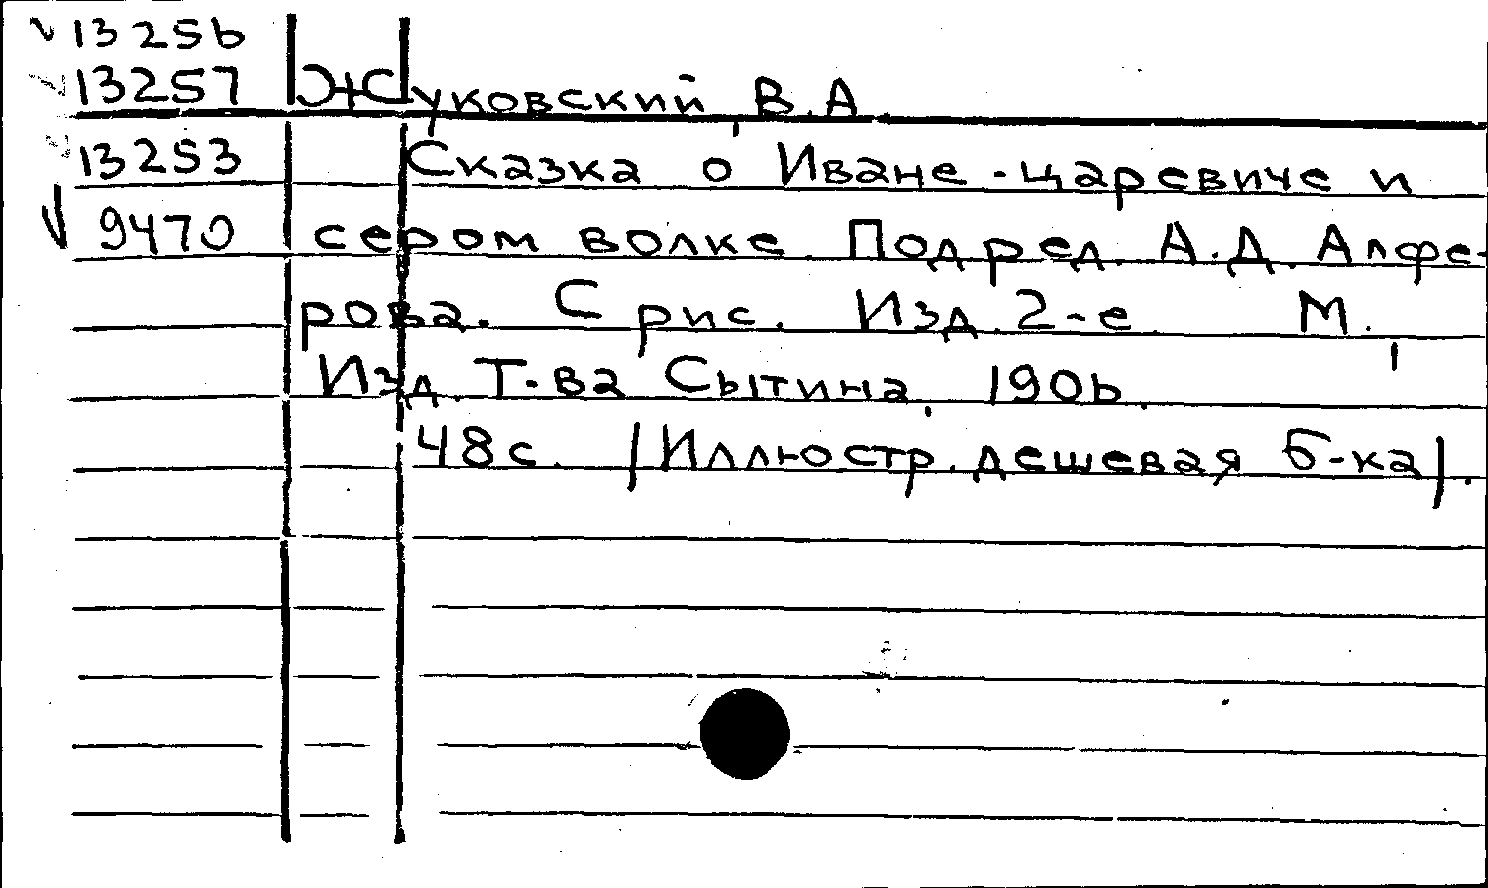 13256
13257 Жуковский, В.А.
13253 Сказка о Иване-царевиче и
9470 сером волке. Под ред. А.Д. Алфе-
рова. С рис. Изд. 2-е. М.,
Изд. Т-ва Сытина, 1906.
48с. /Иллюстр. дешевая б-ка/.